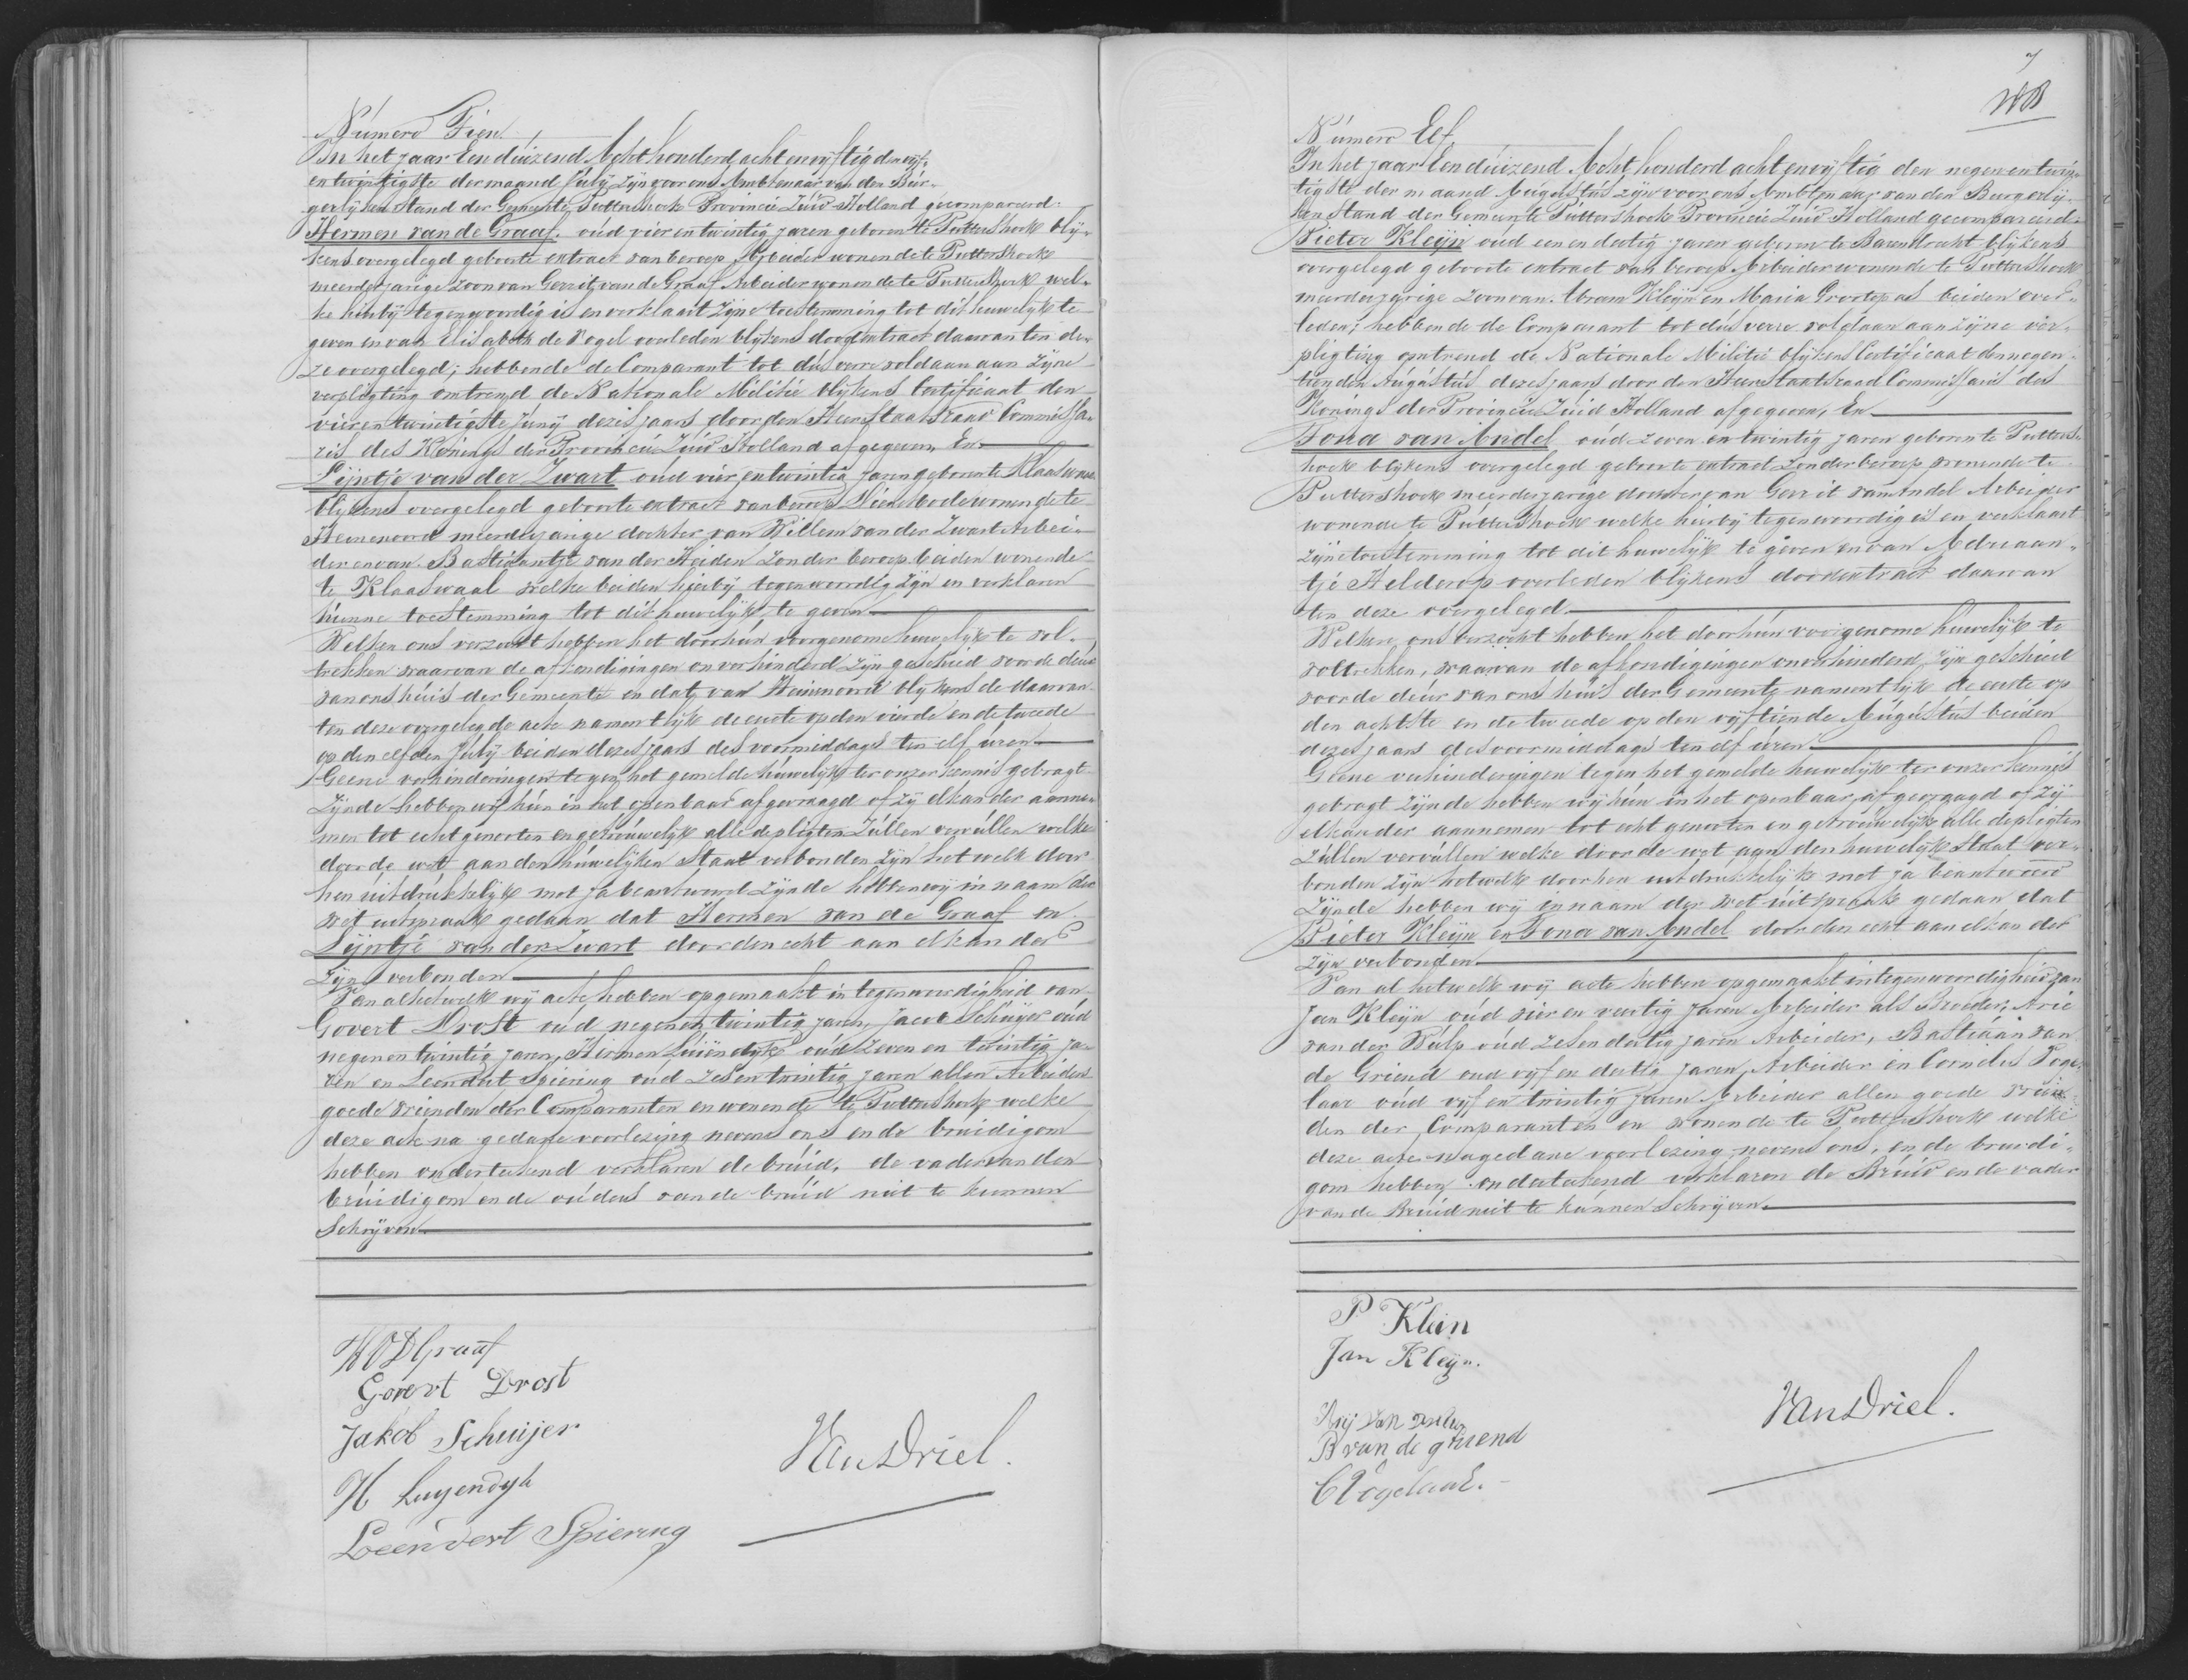 Numero Tien.
In het jaar Een duizend Acht honderd acht en vyftig den vyf-
en twintigste der maand July zyn voor ons Ambtenaar van den Bur-
gerlyken Stand der Gemeente Puttershoek Provincie Zuid Holland gecompareerd:
Hermen van de Graaf, oud vier en twintig jaren geboren te Puttershoek bly-
kens overgelegd geboorte extract van beroep Arbeider wonende te Puttershoek
meerderjarige zoon van Gerrit van de Graaf Arbeider wonende te Puttershoek wel-
ke hierby tegenwoordig is en verklaart zyne toestemming tot dit huwelyk te
geven en van Elisabeth de Vogel overleden blykens doodextract daarvan ten de-
ze overgelegd; hebbende de Comparant tot dus verre voldaan aan zyne
verpligting omtrend de Nationale Militie blykens Certificaat den
vier en twintigste Juny dezes jaars door den Heer Staatsraad Commissa-
ris des Konings der Provincie Zuid Holland afgegeven, En
Lijntje van der Zwart oud vier en twintig jaren geboren te Klaaswaal
blykens overgelegd geboorte extract van beroep Dienstbode wonende te
Heinenoord meerderjarige dochter van Willem van der Zwart Arbei-
der en van Bastiaantje van der Heiden zonder beroep beiden wonende
te Klaaswaal welke beiden hierby tegenwoordig zyn en verklaren
hunne toestemming tot dit huwelyk te geven
Welken ons verzocht hebben het door hun voorgenome huwelyk te vol-
trekken waarvan de afkondigingen onverhinderd zyn geschied voor de deur
van ons huis der Gemeente en dat van Heinenoord blykens de daarvan
ten deze overgelegde acte namentlyk de eerste op den vierde en de tweede
op den elfden July beiden dezes jaars des voormiddags ten elf uren
Geene verhinderingen tegen het gemelde huwelyk ter onzer kennis gebragt
zynde hebben wy hun in het openbaar afgevraagd of zy elkander aanne-
men tot echtgenooten en getrouwelyk alle de pligten zullen vervullen welke
door de wet aan den huwelyken Staat verbonden zyn het welk door
hen uitdrukkelyk met ja beantwoord zynde hebben wy in naam der
wet uitspraak gedaan dat Hermen van de Graaf en
Lijntje van der Zwart door den echt aan elkander
zyn verbonden
Van al hetwelk wy acte hebben opgemaakt in tegenwoordigheid van
Govert Drost oud negen en twintig jaren, Jacob Schuyer oud
negen en twintig jaren, Hermen Luijendyk oud zeven en twintig ja-
ren en Leendert Spiering oud zes en twintig jaren allen Arbeiders
goede vrienden der Comparanten en wonende te Puttershoek welke
deze acte na gedane voorlezing nevens ons en de bruidigom
hebben ondertekend verklaren de bruid, de vader van den
bruidigom en de ouders van de bruid niet te kunnen
Schryven
H VD Graaf
Govert Drost
Jakob Schuijer
H Luyendyk
Leendert Spiering
Van Driel.
7
Numero Elf
In het jaar Een duizend Acht honderd acht en vyftig den negen en twin-
tigste der maand Augustus zyn voor ons Ambtenaar van den Burgerly-
ken Stand der Gemeente Puttershoek Provincie Zuid Holland gecompareerd:
Pieter Kleijn oud een en dertig jaren geboren te Barendrecht blykens
overgelegd geboorte extract van beroep Arbeider wonende te Puttershoek
meerderjarige zoon van Abram Kleijn en Maria Grootepas beiden over-
leden; hebbende de Comparant tot dus verre voldaan aan zyne ver-
pligting omtrend de Nationale Militie blykens Certificaat den negen-
tienden Augustus dezes jaars door den Heer Staatsraad Commissaris des
Konings der Provincie Zuid Holland afgegeven, En
Tona van Andel oud zeven en twintig jaren geboren te Putters-
hoek blykens overgelegd geboorte extract zonder beroep wonende te
Puttershoek meerderjarige dochter van Gerrit van Andel Arbeider
wonende te Puttershoek welke hierby tegenwoordig is en verklaart
zyne toestemming tot dit huwelyk te geven en van Adriaan-
tje Helderop overleden blykens doodextract daarvan
ten deze overgelegd.
Welken ons verzocht hebben het door hun voorgenome huwelyk te
voltrekken, waarvan de afkondigingen onverhinderd zyn geschied
voor de deur van ons huis der Gemeente namentlyk de eerste op
den achtste en de tweede op den vyftiende Augustus beiden
dezes jaars des voormiddags ten elf uren
Geene verhinderingen tegen het gemelde huwelyk ter onzer kennis
gebragt zynde hebben wy hun in het openbaar afgevraagd of zy
elkander aannemen tot echtgenooten en getrouwelyk alle de pligten
zullen vervullen welke door de wet aan den huwelyk Staat ver-
bonden zyn hetwelk door hen uitdrukkelyk met ja beantwoord
zynde hebben wy in naam der wet uitspraak gedaan dat
Pieter Kleijn en Tona van Andel door den echt aan elkander
zyn verbonden
Van al hetwelk wy acte hebben opgemaakt in tegenwoordigheid van
Jan Kleijn oud vier en veertig jaren Arbeider als broeder, Arie
van der Wulp oud zes en dertig jaren Arbeider, Bastiaan van
de Griend oud vyf en dertig jaren Arbeider en Cornelis Voge-
laar oud vyf en twintig jaren Arbeider allen goede vrien-
den der Comparanten en wonende te Puttershoek welke
deze acte na gedane voorlezing nevens ons, en de bruidi-
gom hebben ondertekend verklaren de Bruid en de vader
van de Bruid niet te kunnen Schryven.
P. Klein
Jan Kleyn.
B van de griend
C Vogelaar.
Van Driel.